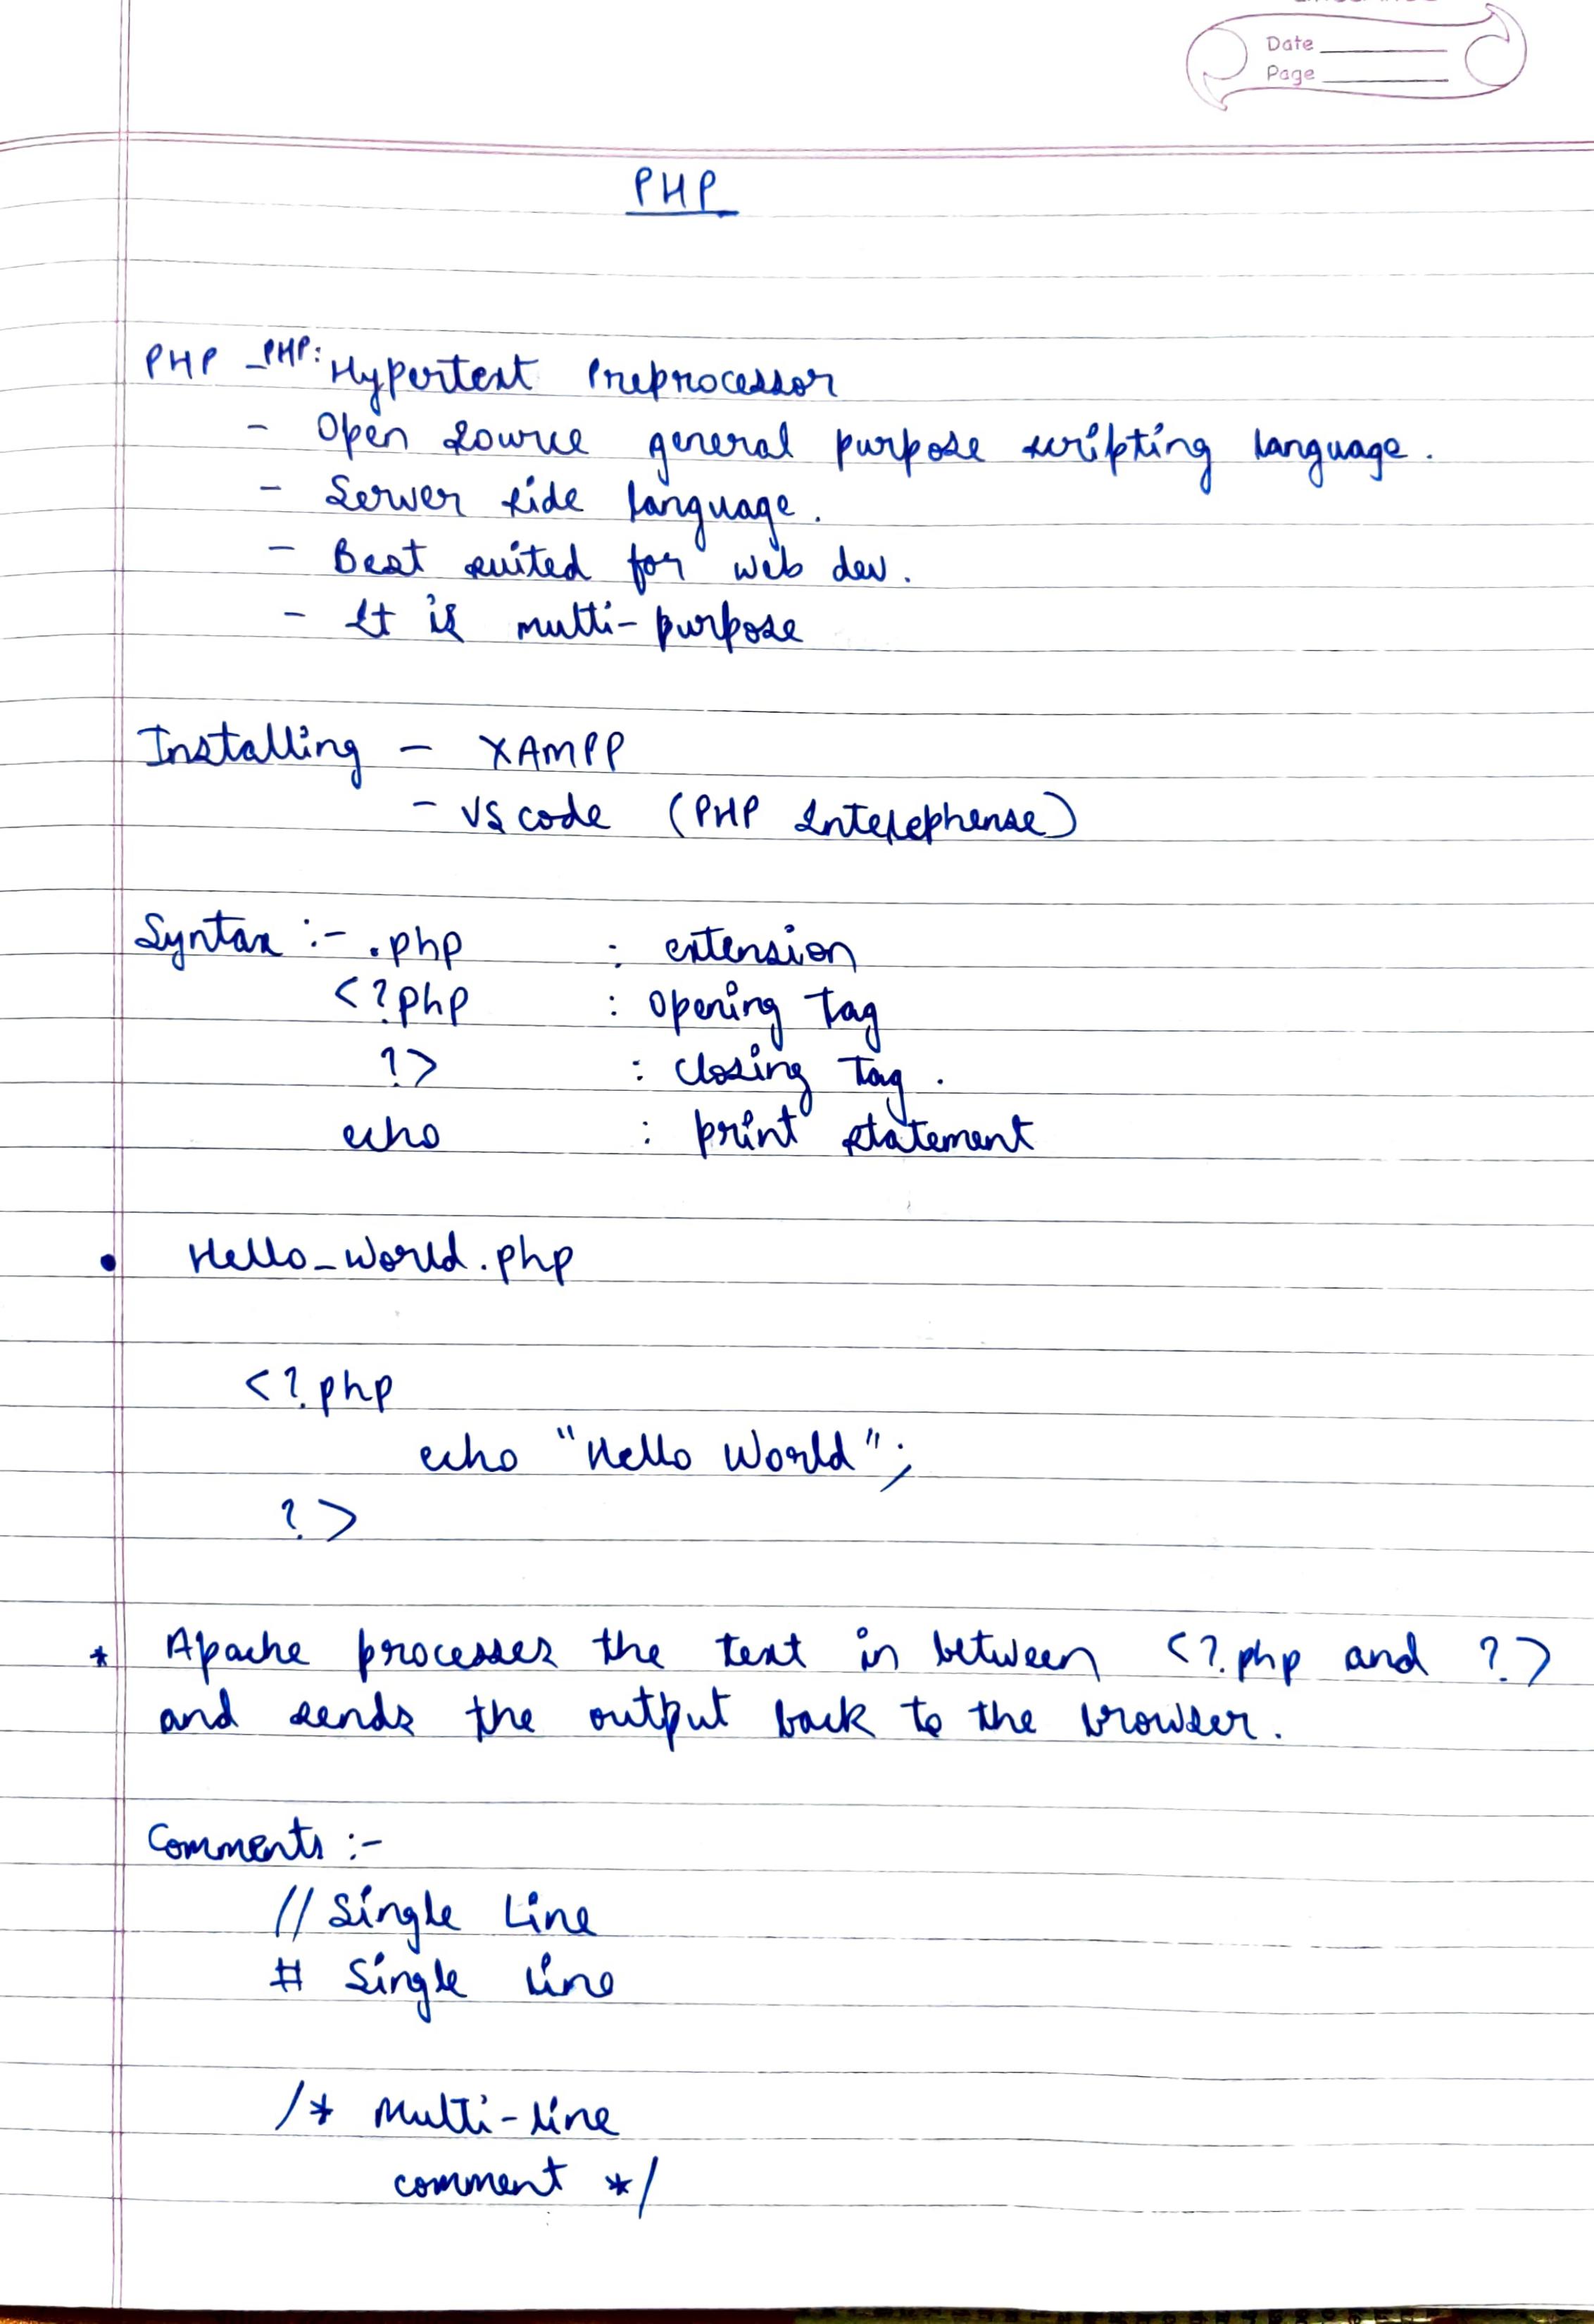 Date
Page
PHP
PHP - PHP: Hypertext Preprocessor
- Open source general purpose scripting language.
- Server side language.
- Best suited for web dev.
- It is multi-purpose
Installing - XAMPP
- VS code (PHP Intelephense)
Syntax :- .php : extension
<?php : opening tag
?> : closing tag.
echo : print statement
• Hello_World.php
<?php
echo "Hello World";
?>
* Apache processes the text in between <?php and ?>
and sends the output back to the browser.
Comments :-
// Single Line
# Single Line
/* Multi-line
comment */